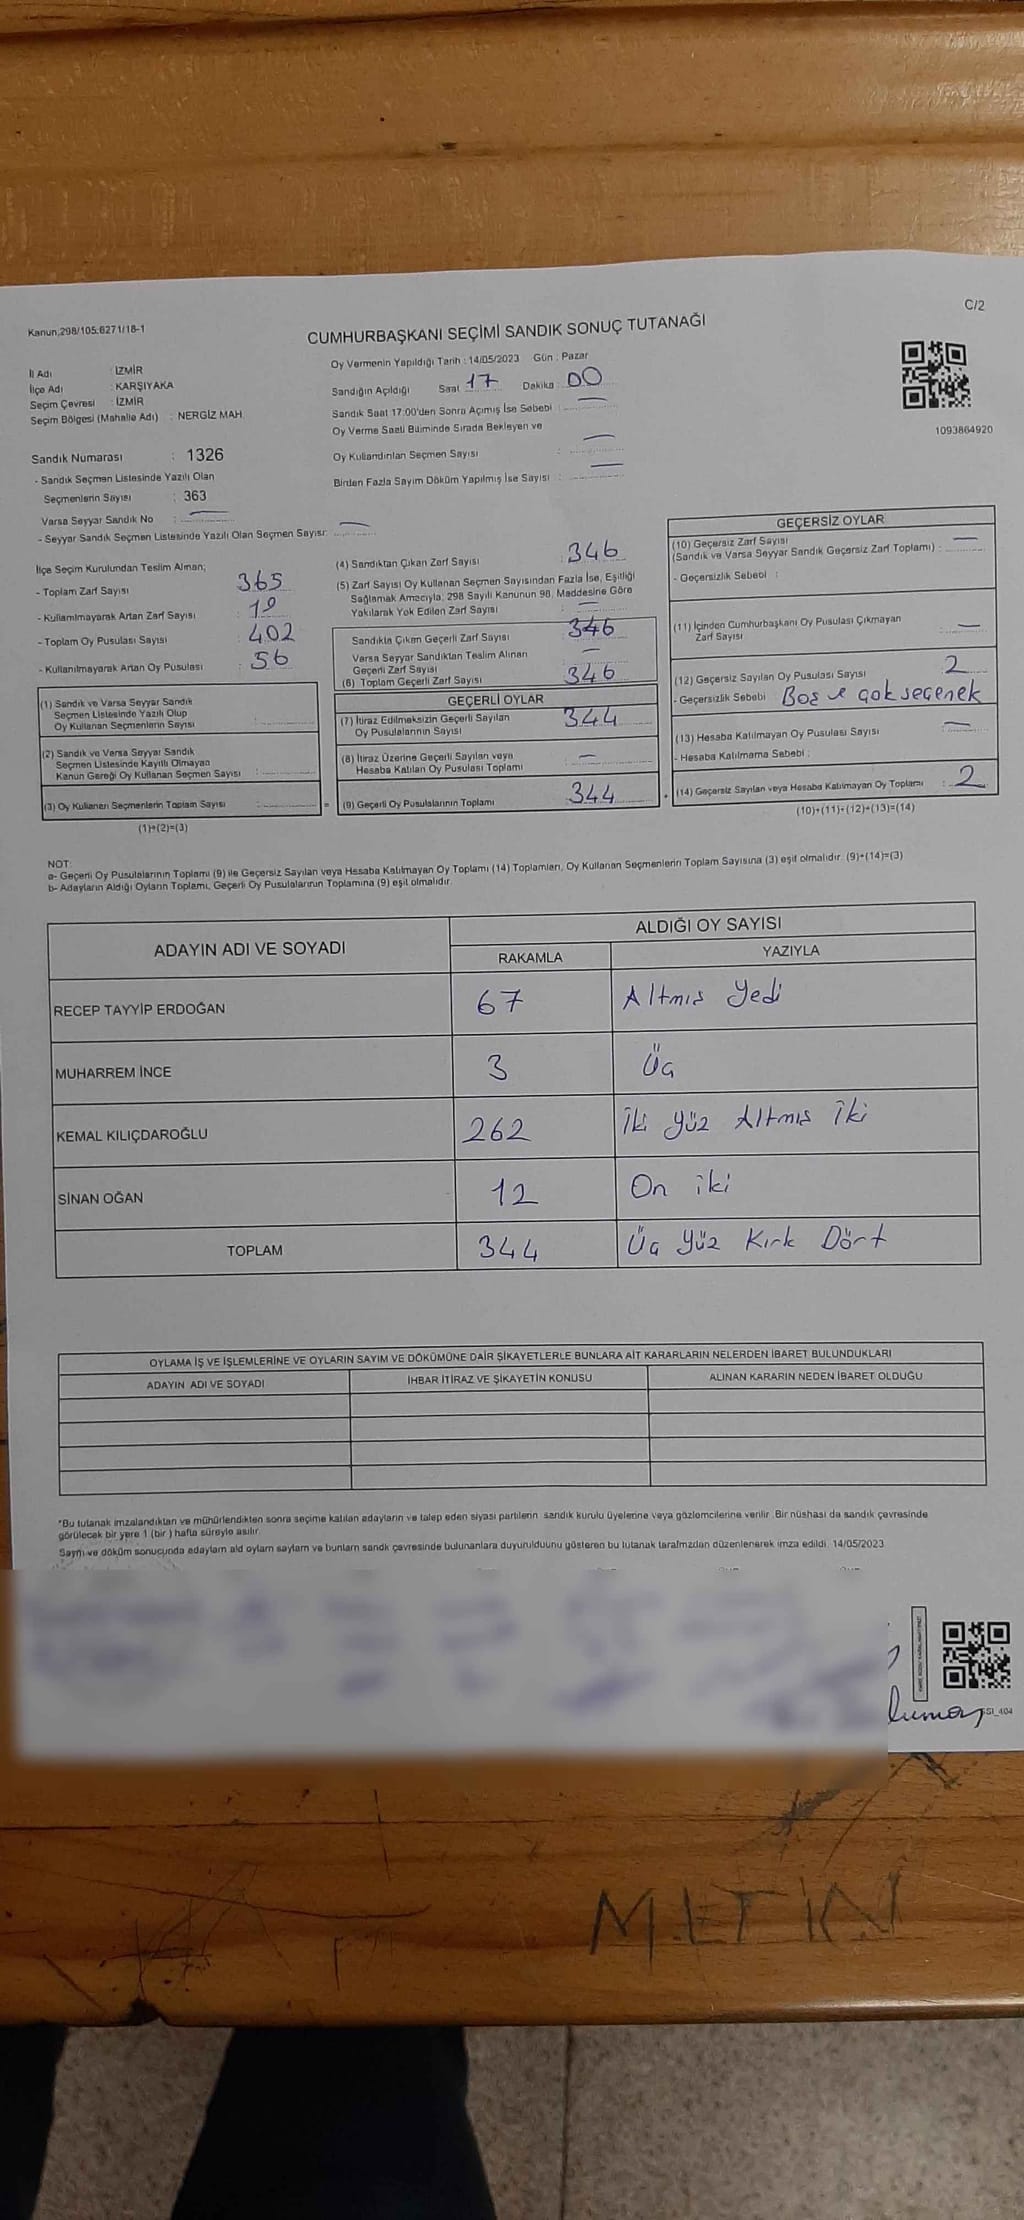 Kanun,298/105:6271/18-1
C/2
CUMHURBAŞKANI SEÇİMİ SANDIK SONUÇ TUTANAĞI
İl Adı : İZMİR
İlçe Adı : KARŞIYAKA
Seçim Çevresi : İZMİR
Seçim Bölgesi (Mahalle Adı) : NERGİZ MAH.
Oy Vermenin Yapıldığı Tarih : 14/05/2023 Gün : Pazar
Sandığın Açıldığı Saat 17 Dakika : 00
Sandık Saat 17:00'den Sonra Açımış İse Sebebi : —
Oy Verme Saati Bitiminde Sırada Bekleyen ve
Oy Kullandırılan Seçmen Sayısı : —
Birden Fazla Sayım Döküm Yapılmış İse Sayısı : —
1093864920
Sandık Numarası : 1326
- Sandık Seçmen Listesinde Yazılı Olan
Seçmenlerin Sayısı : 363
Varsa Seyyar Sandık No : —
- Seyyar Sandık Seçmen Listesinde Yazılı Olan Seçmen Sayısı: —
İlçe Seçim Kurulundan Teslim Alınan;
- Toplam Zarf Sayısı : 365
- Kullanılmayarak Artan Zarf Sayısı : 19
- Toplam Oy Pusulası Sayısı : 402
- Kullanılmayarak Artan Oy Pusulası : 56
(1) Sandık ve Varsa Seyyar Sandık
Seçmen Listesinde Yazılı Olup
Oy Kullanan Seçmenlerin Sayısı :
(2) Sandık ve Varsa Seyyar Sandık
Seçmen Listesinde Kayıtlı Olmayan
Kanun Gereği Oy Kullanan Seçmen Sayısı :
(3) Oy Kullanan Seçmenlerin Toplam Sayısı :
(1)+(2)=(3)
(4) Sandıktan Çıkan Zarf Sayısı 346
(5) Zarf Sayısı Oy Kullanan Seçmen Sayısından Fazla İse, Eşitliği
Sağlamak Amacıyla, 298 Sayılı Kanunun 98. Maddesine Göre
Yakılarak Yok Edilen Zarf Sayısı : —
Sandıkta Çıkan Geçerli Zarf Sayısı 346
Varsa Seyyar Sandıktan Teslim Alınan
Geçerli Zarf Sayısı —
(6) Toplam Geçerli Zarf Sayısı 346
GEÇERLİ OYLAR
(7) İtiraz Edilmeksizin Geçerli Sayılan
Oy Pusulalarının Sayısı 344
(8) İtiraz Üzerine Geçerli Sayılan veya
Hesaba Katılan Oy Pusulası Toplamı : —
(9) Geçerli Oy Pusulalarının Toplamı 344
GEÇERSİZ OYLAR
(10) Geçersiz Zarf Sayısı
(Sandık ve Varsa Seyyar Sandık Geçersiz Zarf Toplamı) : —
- Geçersizlik Sebebi :
(11) İçinden Cumhurbaşkanı Oy Pusulası Çıkmayan
Zarf Sayısı : —
(12) Geçersiz Sayılan Oy Pusulası Sayısı 2
- Geçersizlik Sebebi Boş ve çok seçenek
(13) Hesaba Katılmayan Oy Pusulası Sayısı —
- Hesaba Katılmama Sebebi :
(14) Geçersiz Sayılan veya Hesaba Katılmayan Oy Toplamı : 2
(10)+(11)+(12)+(13)=(14)
NOT:
a- Geçerli Oy Pusulalarının Toplamı (9) ile Geçersiz Sayılan veya Hesaba Katılmayan Oy Toplamı (14) Toplamları, Oy Kullanan Seçmenlerin Toplam Sayısına (3) eşit olmalıdır. (9)+(14)=(3)
b- Adayların Aldığı Oyların Toplamı, Geçerli Oy Pusulalarının Toplamına (9) eşit olmalıdır.
ADAYIN ADI VE SOYADI ALDIĞI OY SAYISI
RAKAMLA YAZIYLA
RECEP TAYYİP ERDOĞAN 67 Altmış Yedi
MUHARREM İNCE 3 Üç
KEMAL KILIÇDAROĞLU 262 İki Yüz Altmış İki
SİNAN OĞAN 12 On iki
TOPLAM 344 Üç Yüz Kırk Dört
OYLAMA İŞ VE İŞLEMLERİNE VE OYLARIN SAYIM VE DÖKÜMÜNE DAİR ŞİKAYETLERLE BUNLARA AİT KARARLARIN NELERDEN İBARET BULUNDUKLARI
ADAYIN ADI VE SOYADI İHBAR İTİRAZ VE ŞİKAYETİN KONUSU ALINAN KARARIN NEDEN İBARET OLDUĞU
*Bu tutanak imzalandıktan ve mühürlendikten sonra seçime katılan adayların ve talep eden siyasi partilerin sandık kurulu üyelerine veya gözlemcilerine verilir. Bir nüshası da sandık çevresinde
görülecek bir yere 1 (bir) hafta süreyle asılır.
Sayım ve döküm sonucunda adayların aldı oyların sayıları ve bunların sandk çevresinde bulunanlara duyurulduunu gösteren bu tutanak tarafmzdan düzenlenerek imza edildi. 14/05/2023
SSI_404
METİN